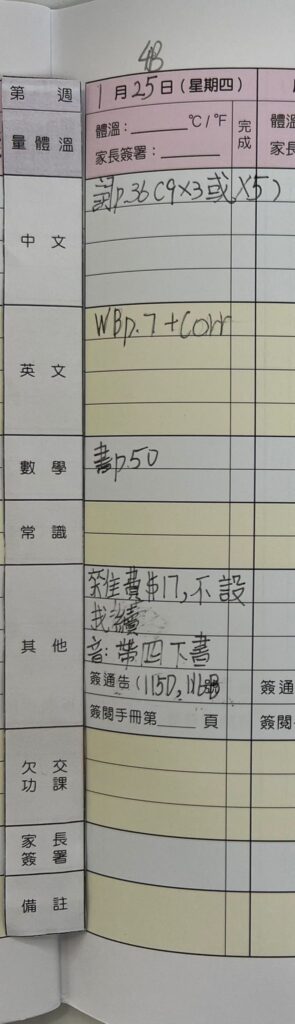 4B
第 週
1月25日(星期四)
量體溫
體溫：______°C/°F
家長簽署：______
完成
中文
詞p.36(9×3或×5)
英文
WBp.7+Corr
數學
書p.50
常識
其他
雜費$17,不設
找續
音:帶四下書
簽通告(115D,116B
簽閱手冊第____頁
欠交功課
家長簽署
備註
體溫
家長
簽通
簽閱